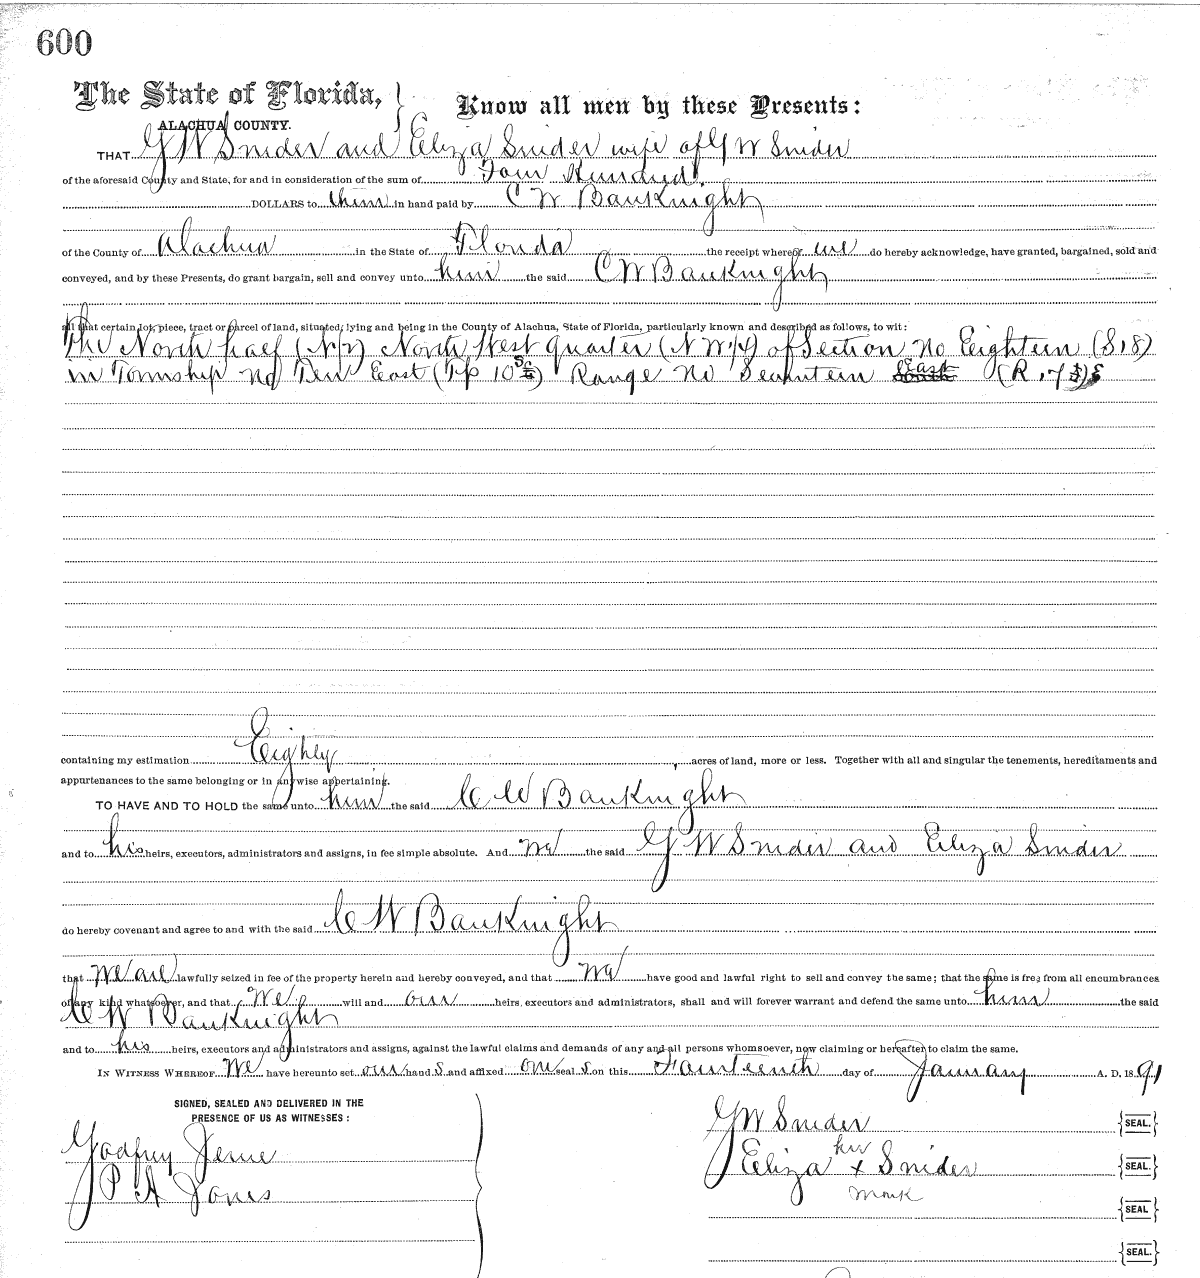 600
The State of Florida, } Know all men by these Presents:
ALACHUA COUNTY.
THAT G W Snider and Eliza Snider wife of G W Snider
of the aforesaid County and State, for and in consideration of the sum of Four Hundred
DOLLARS to them in hand paid by C W Bauknight
of the County of Alachua in the State of Florida the receipt whereof we do hereby acknowledge, have granted, bargained, sold and
conveyed, and by these Presents, do grant bargain, sell and convey unto him the said C W Bauknight
all that certain lot, piece, tract or parcel of land, situated, lying and being in the County of Alachua, State of Florida, particularly known and described as follows, to wit:
The North half (N/2) North West quarter (N W 1/4) of Section no Eighteen (S 18)
in Township no Ten East (Tp 10 S) Range no Seventeen East (R 17 E)
containing my estimation Eighty acres of land, more or less. Together with all and singular the tenements, hereditaments and
appurtenances to the same belonging or in anywise appertaining.
TO HAVE AND TO HOLD the same unto him the said C W Bauknight
and to his heirs, executors, administrators and assigns, in fee simple absolute. And we the said G W Snider and Eliza Snider
do hereby covenant and agree to and with the said C W Bauknight
that we are lawfully seized in fee of the property herein and hereby conveyed, and that we have good and lawful right to sell and convey the same; that the same is free from all encumbrances
of any kind whatsoever, and that We will and our heirs, executors and administrators, shall and will forever warrant and defend the same unto him the said
C W Bauknight
and to his heirs, executors and administrators and assigns, against the lawful claims and demands of any and all persons whomsoever, now claiming or hereafter to claim the same.
IN WITNESS WHEREOF We have hereunto set our hand s and affixed our seal s on this Fourteenth day of January A. D, 1891
SIGNED, SEALED AND DELIVERED IN THE
PRESENCE OF US AS WITNESSES:
G W Snider {SEAL.}
her
Godfrey
Eliza x Snider {SEAL.}
mark
P A Jones
{SEAL}
{SEAL.}